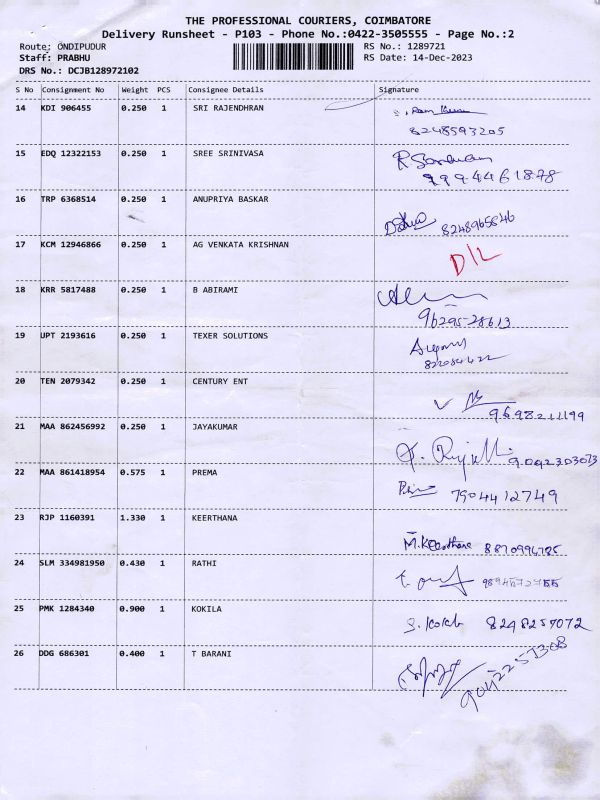 THE PROFESSIONAL COURIERS, COIMBATORE
Delivery Runsheet - P103 - Phone No.:0422-3505555 - Page No.:2
Route: ONDIPUDUR RS No.: 1289721
Staff: PRABHU RS Date: 14-Dec-2023
DRS No.: DCJB128972102
S No Consignment No Weight PCS Consignee Details Signature
14 KDI 906455 0.250 1 SRI RAJENDHRAN
8248593205
15 EDQ 12322153 0.250 1 SREE SRINIVASA
9994461878
16 TRP 6368514 0.250 1 ANUPRIYA BASKAR
8248965846
17 KCM 12946866 0.250 1 AG VENKATA KRISHNAN D/L
18 KRR 5817488 0.250 1 B ABIRAMI
9629528613
19 UPT 2193616 0.250 1 TEXER SOLUTIONS
20 TEN 2079342 0.250 1 CENTURY ENT
9698211199
21 MAA 862456992 0.250 1 JAYAKUMAR
9092303073
22 MAA 861418954 0.575 1 PREMA
7904412749
23 RJP 1160391 1.330 1 KEERTHANA
M.Keerthana
24 SLM 334981950 0.430 1 RATHI
25 PMK 1284340 0.900 1 KOKILA
8248257072
26 DDG 686301 0.400 1 T BARANI